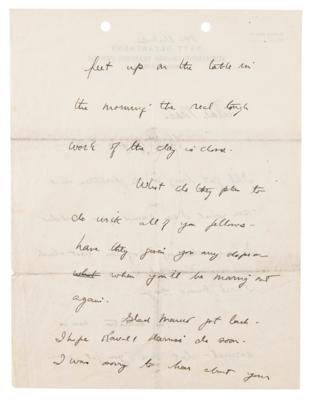 feet up on the table in
the morning the real tough
work of the day is done.
What do they plan to
do with all of you fellows-
have they given you any dope on
what when you'll be moving out
again.
Glad got back.
I hope do soon.
I was sorry to hear about your
NAVY DEPARTMENT